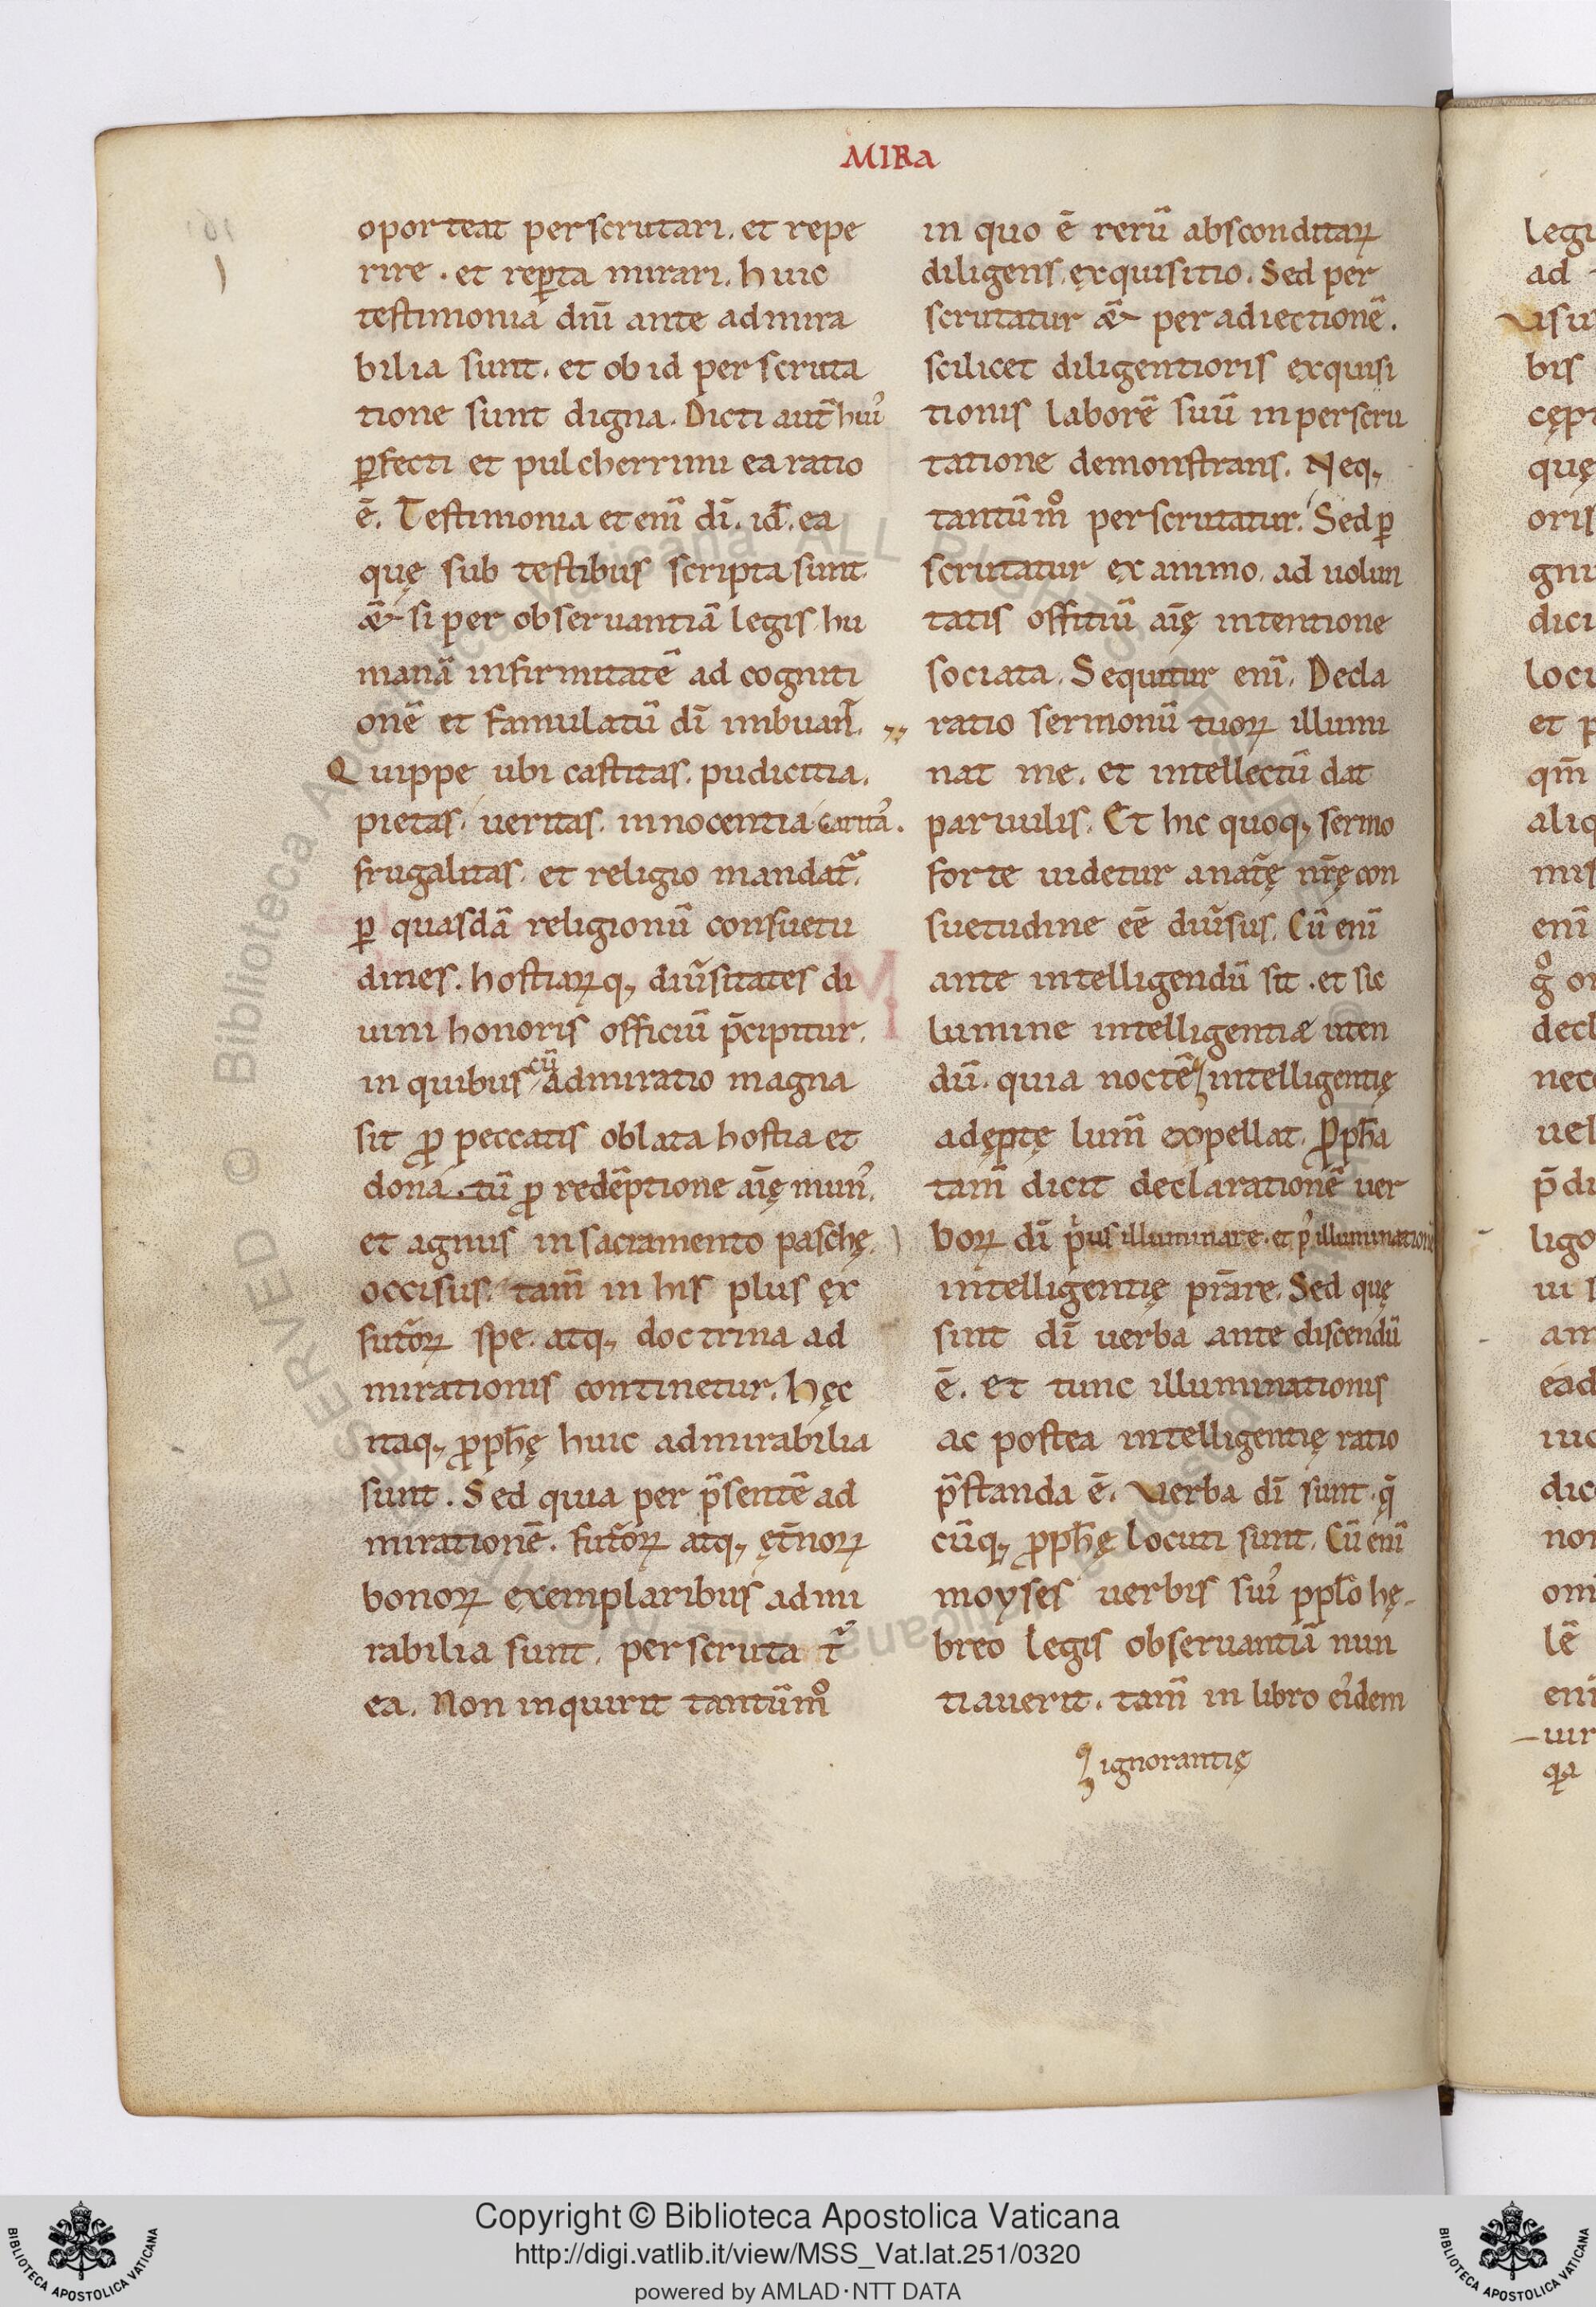 MIRA
oporteat perscrutari. et repe
rire. et rep̱ta mirari. huic
testimonia dñi ante admira
bilia sunt. et ob id perscruta
tione sunt digna. Dicti aut̃ hui᾽
ꝑfecti et pulcherrimi ea ratio
ē. Testimonia etenĩ dĩ. id̃. ea
quę sub testibus scripta sunt
æ̃ si per obseruantiã legis hu
manã infirmitatẽ ad cogniti
onẽ et famulatũ dĩ imbuañ.
Quippe ubi castitas. pudicitia.
pietas. ueritas. innocentia caritã.
frugalitas. et religio mandat᷑.
ꝑ quasdã religionũ consuetu
dines. hostiaꝝq, diũsitates di
uini honoris officiũ p̃cipitur.
in quibus cũ admiratio magna
sit ꝓ peccatis oblata hostia et
dona. tũ ꝓ redẽptione aĩę mun᾽.
et agnus in sacramento paschę
occisus. tam̃ in his plus ex
fut̃oꝝ spe. atq, doctrina ad
mirationis continetur. hęc
itaq, ꝓph̃ę huic admirabilia
sunt. Sed quia per p̃sentẽ ad
mirationẽ. fut̃oꝝ atq, ęt̃noꝝ
bonoꝝ exemplaribus admi
rabilia sunt. perscrutat᷑
ea. Non inquirit tantũm̊
in quo ē rerũ absconditaꝝ
diligens exquisitio. Sed per
scrutatur æ̃ per adiectionẽ.
scilicet diligentioris exquisi
tionis laborẽ suũ in perscru
tatione demonstrans. Neq,
tantũm̊ perscrutatur. Sed ꝑ
scrutatur ex animo. ad uolun
tatis offitiũ aĩę intentione
sociata. Sequitur enĩ. Decla
ratio sermonũ tuoꝝ illumi
nat me. et intellectũ dat
paruulis. Et hic quoq, sermo
forte uidetur a nat̃ę nr̃ę con
suetudine eē diũsus. Cũ enĩ
ante intelligendũ sit. et sic
lumine intelligentiæ uten
dũ. quia noctẽ intelligentię
adęptę lum̃ expellat. Ꝓph̃a
tam̃ dicit declarationẽ uer
boꝝ dĩ pius illuminare. et p᾽ illuminationẽ
intelligentię pr̃are. Sed quę
sint dĩ uerba ante discendũ
ē. et tunc illuminationis
ac postea intelligentię ratio
p̃standa ē. Verba dĩ sunt q̃
cũq, ꝓph̃ę locuti sunt. Cũ enĩ
moyses uerbis sui᾽ ppl̃o hę
breo legis obseruantiã nun
tiauerit. tam̃ in libro ei᾽dem
ignorantię
legi
ad
uisu
bis
cęp
quę
oris
gni
dici
loci
et p
qm̃
aliq
mis
enĩ
decl
nec
uel
p̃di
ligo
ui s
am
ead
iuc
dic
non
omi
lẽ
eni
uir
Copyright © Biblioteca Apostolica Vaticana
http://digi.vatlib.it/view/MSS_Vat.lat.251/0320
powered by AMLAD·NTT DATA
BIBLIOTECA APOSTOLICA VATICANA
BIBLIOTECA APOSTOLICA VATICANA